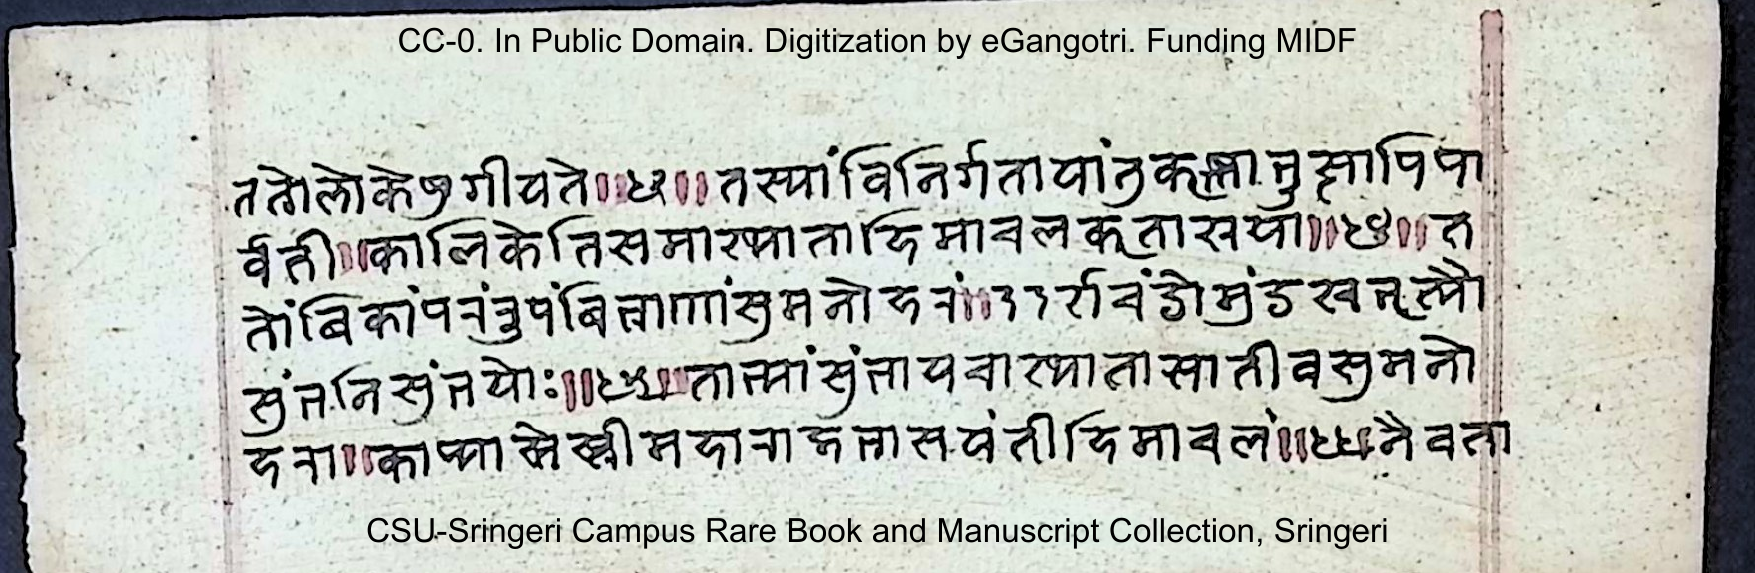 CC-0. In Public Domain. Digitization by eGangotri. Funding MIDF
ततोलोकेषुगीयते॥४३॥तस्यांविनिर्गतायांतुकृत्स्नातुसापिपा
र्वती॥कालिकेतिसमाख्याताहिमाचलकृताश्रया॥४४॥त
तोंबिकांपरंरुपंबिभ्राणांसुमनोहरां॥ददर्शचंडोमुंडश्चभृत्यौ
सुंभनिसुंभयोः॥४५॥ताभ्यांसुंभायचाख्यातासातीवसुमनो
हरा॥काप्यास्तेस्त्रीमहाराजभासयंतीहिमाचलं॥४६॥नैवता
CSU-Sringeri Campus Rare Book and Manuscript Collection, Sringeri